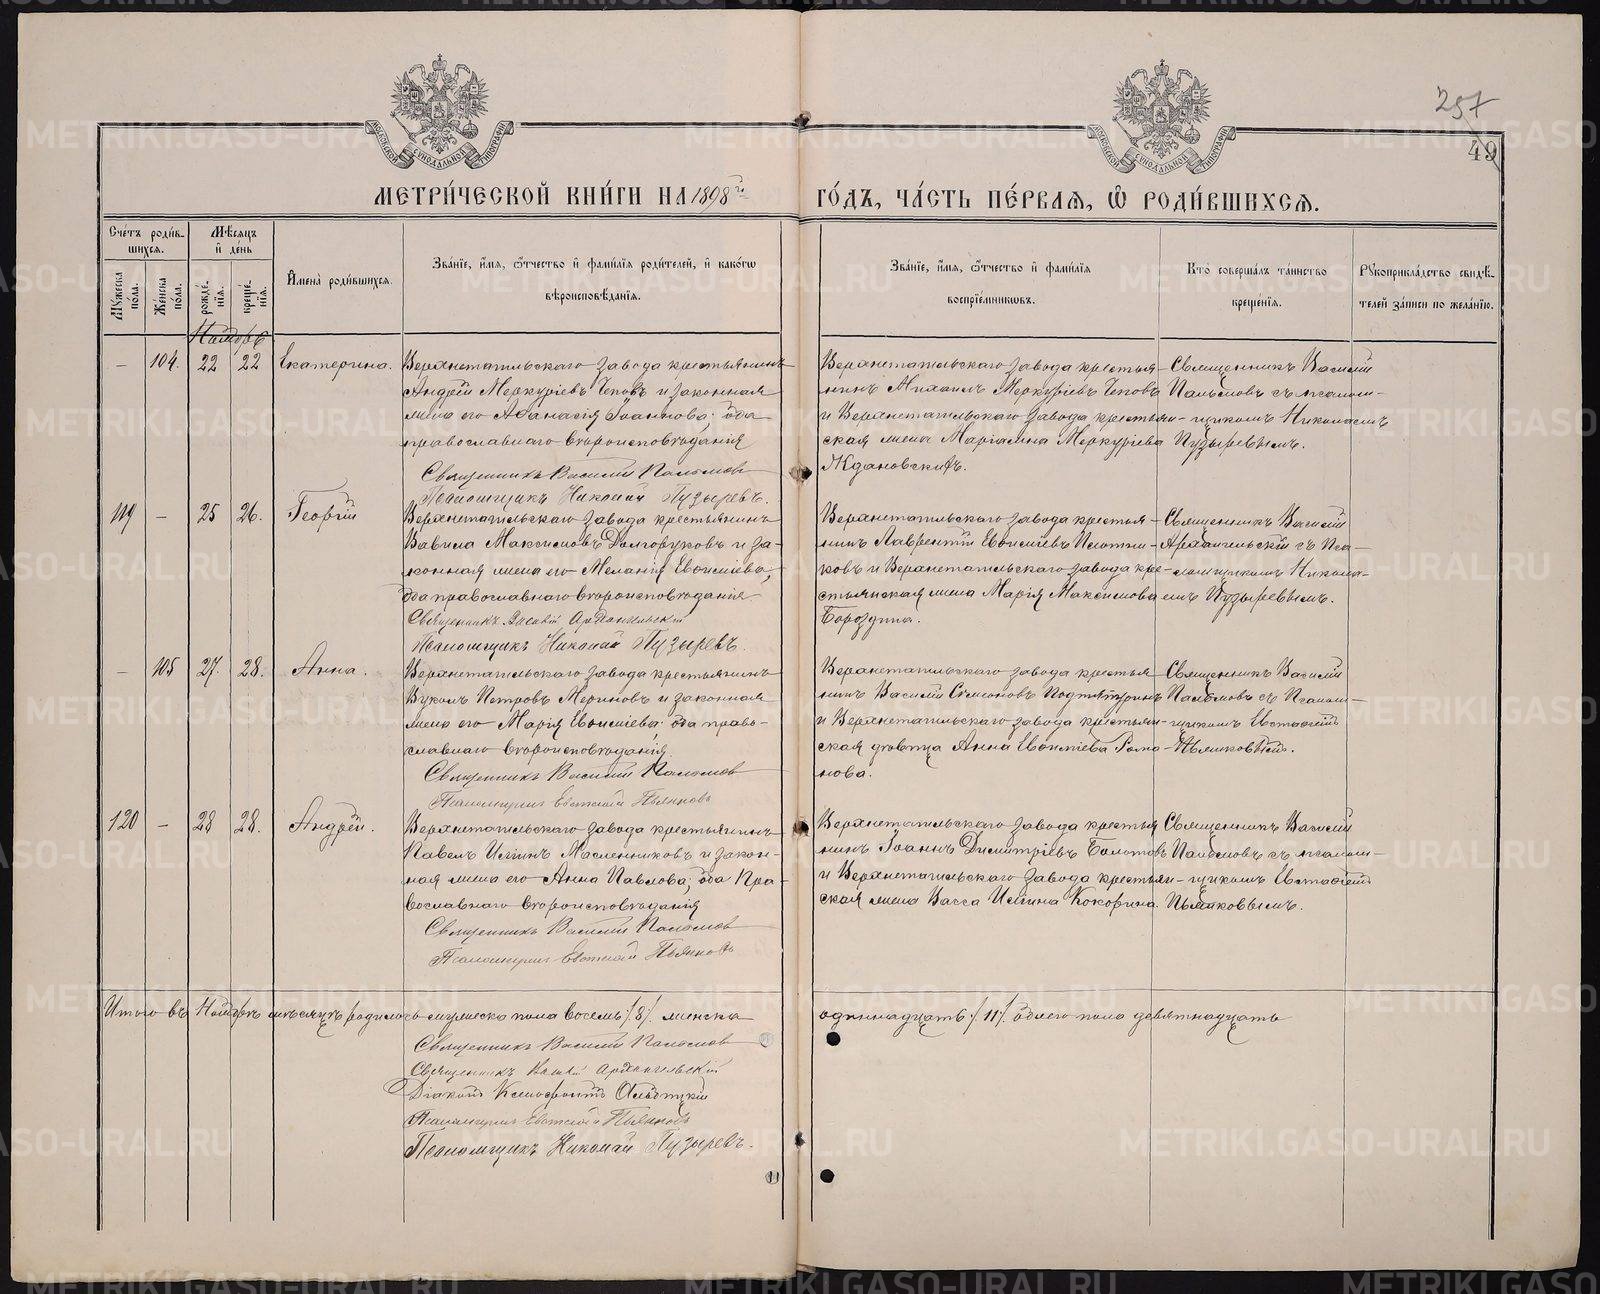 257
49
МОСКОВСКОЙ СѴНОДАЛЬНОЙ ТИПОГРАФІИ
МОСКОВСКОЙ СѴНОДАЛЬНОЙ ТИПОГРАФІИ
МЕТРИ́ЧЕСКОЙ КНИ́ГИ НА 1898й
ГО́ДЪ, ЧА́СТЬ ПЕ́РВАѦ, Ѡ РОДИ́ВШИХСѦ.
Сче́тъ роди́в-
шихсѧ.
Му́жеска по́ла.
Же́нска по́ла.
Мѣ́сѧцъ
и҆ де́нь
рожде́нїѧ.
креще́нїѧ.
И҆мена̀ роди́вшихсѧ.
Зва́нїе, и҆́мѧ, ѻ҆́тчество и҆ фами́лїѧ роди́телей, и҆ како́гѡ
вѣроисповѣ́данїѧ.
Зва́нїе, и҆́мѧ, ѻ҆́тчество и҆ фами́лїѧ
воспрїе́мниковъ.
Кто̀ соверша́лъ та́инство
креще́нїѧ.
Рꙋкоприкла́дство свидѣ́-
телей за́писи по жела́нїю.
Ноябрь
— 104. 22 22 Екатерина.
Верхнетагильскаго завода крестьянинъ
Андрей Меркуріевъ Чеповъ и законная
жена его Аѳанасія Іоаннова; оба
православнаго вѣроисповѣданія
Священникъ Василій Пальмовъ
Псаломщикъ Николай Пузыревъ.
Верхнетагильскаго завода крестья-
нинъ Михаилъ Меркуріевъ Чеповъ
и Верхнетагильскаго завода крестьян-
ская жена Маріамна Меркуріева
Ждановскихъ.
Священникъ Василій
Пальмовъ съ псалом-
щикомъ Николаемъ
Пузыревымъ.
119 — 25 26. Георгій
Верхнетагильскаго завода крестьянинъ
Вавила Максимовъ Долгоруковъ и за-
конная жена его Меланія Евѳиміева;
оба православнаго вѣроисповѣданія
Священникъ Василій Архангельскій
Псаломщикъ Николай Пузыревъ.
Верхнетагильскаго завода крестья-
нинъ Лаврентій Евѳиміевъ Плотни-
ковъ и Верхнетагильскаго завода кре-
стьянская жена Марія Максимова
Бороздина.
Священникъ Василій
Архангельскій съ Пса-
ломщикомъ Никола-
емъ Пузыревымъ.
— 105 27. 28. Анна.
Верхнетагильскаго завода крестьянинъ
Вуколъ Петровъ Мериновъ и законная
жена его Марія Евѳиміева; оба право-
славнаго вѣроисповѣданія
Священникъ Василій Пальмовъ
Псаломщикъ Евстафій Пьянковъ
Верхнетагильскаго завода крестья
нинъ Василій Симеоновъ
и Верхнетагильскаго завода крестьян-
ская дѣвица Анна Евѳиміева Рома-
нова.
Священникъ Василій
Пальмовъ съ Псалом-
щикомъ Евстафіемъ
Пьянковымъ.
120 — 28 28. Андрей.
Верхнетагильскаго завода крестьянинъ
Павелъ Иліинъ Масленниковъ и закон-
ная жена его Анна Павлова; оба Пра-
вославнаго вѣроисповѣданія
Священникъ Василій Пальмовъ
Псаломщикъ Евстафій Пьянковъ
Верхнетагильскаго завода крестья
нинъ Іоаннъ Димитріевъ Болотовъ
и Верхнетагильскаго завода крестьян-
ская жена Васса Иліина Кокорина.
Священникъ Василій
Пальмовъ съ псалом-
щикомъ Евстафіемъ
Пьянковымъ.
Итого въ Ноябрѣ мѣсяцѣ родилось мужеска пола восемь /8/. женска
одиннадцать /11/. обоего пола девятнадцать
Священникъ Василій Пальмовъ
Священникъ Василій Архангельскій
Діаконъ Ксенофонтъ
Псаломщикъ Евстафій Пьянковъ
Псаломщикъ Николай Пузыревъ.
METRIKI.GASO-URAL.RU